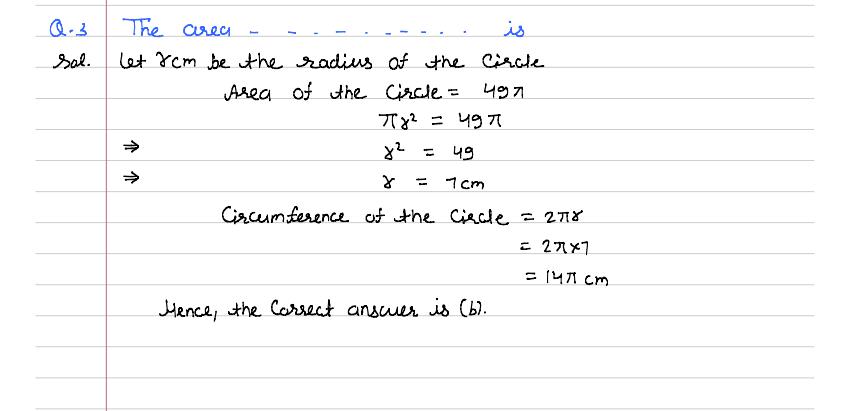 Q.3 The area - - - - - - - - - - is
Sol. Let r cm be the radius of the Circle
Area of the Circle = 49π
πr² = 49π
⇒ r² = 49
⇒ r = 7cm
Circumference of the Circle = 2πr
= 2π×7
= 14π cm
Hence, the Correct answer is (b).